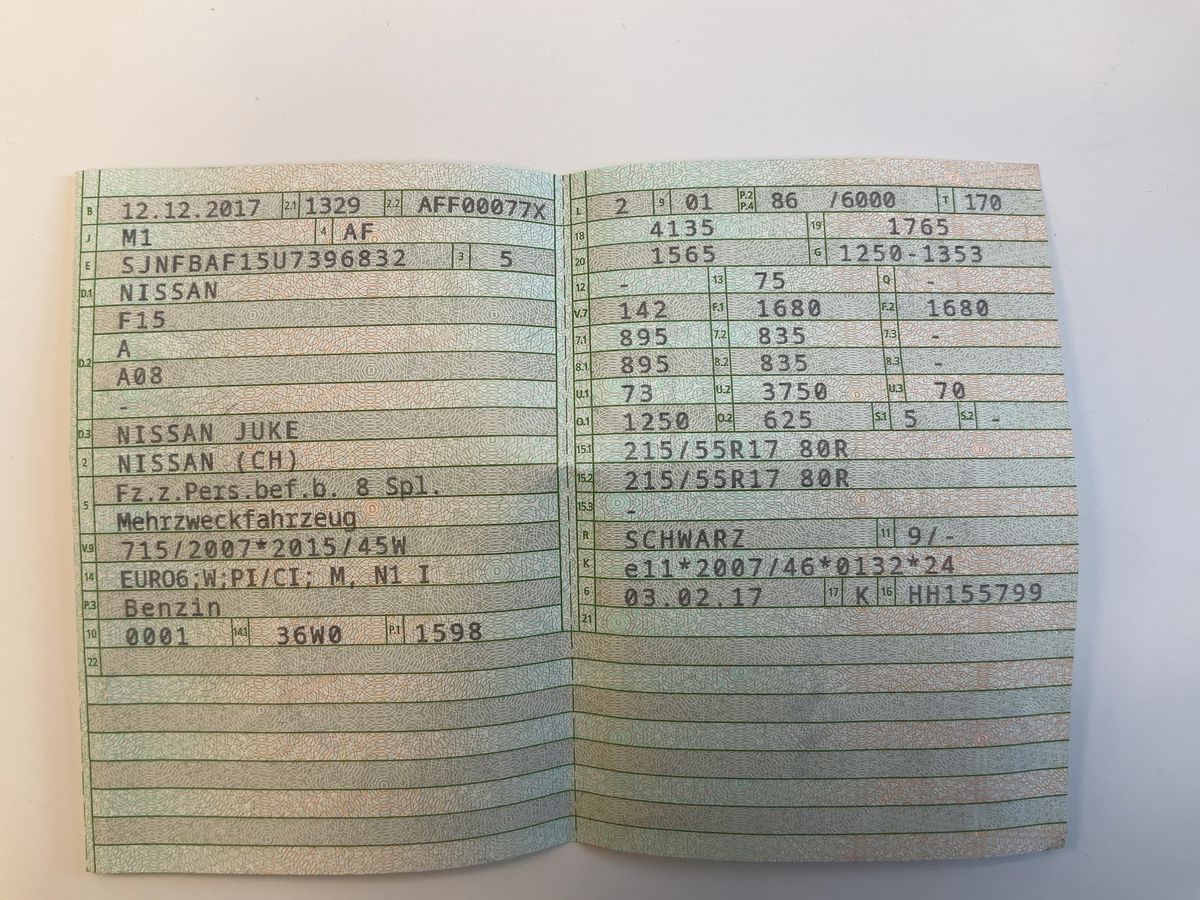 B 12.12.2017 2.1 1329 2.2 AFF00077X
J M1 4 AF
E SJNFBAF15U7396832 3 5
D.1 NISSAN
F15
D.2 A
A08
-
D.3 NISSAN JUKE
2 NISSAN (CH)
5 Fz.z.Pers.bef.b. 8 Spl.
Mehrzweckfahrzeug
V.9 715/2007*2015/45W
14 EURO6;W;PI/CI; M, N1 I
P.3 Benzin
10 0001 14.1 36W0 P.1 1598
22
L 2 9 01 P.2 P.4 86 /6000 T 170
18 4135 19 1765
20 1565 G 1250-1353
12 - 13 75 Q -
V.7 142 F.1 1680 F.2 1680
7.1 895 7.2 835 7.3 -
8.1 895 8.2 835 8.3 -
U.1 73 U.2 3750 U.3 70
O.1 1250 O.2 625 S.1 5 S.2 -
15.1 215/55R17 80R
15.2 215/55R17 80R
15.3 -
R SCHWARZ 11 9/-
K e11*2007/46*0132*24
6 03.02.17 17 K 16 HH155799
21